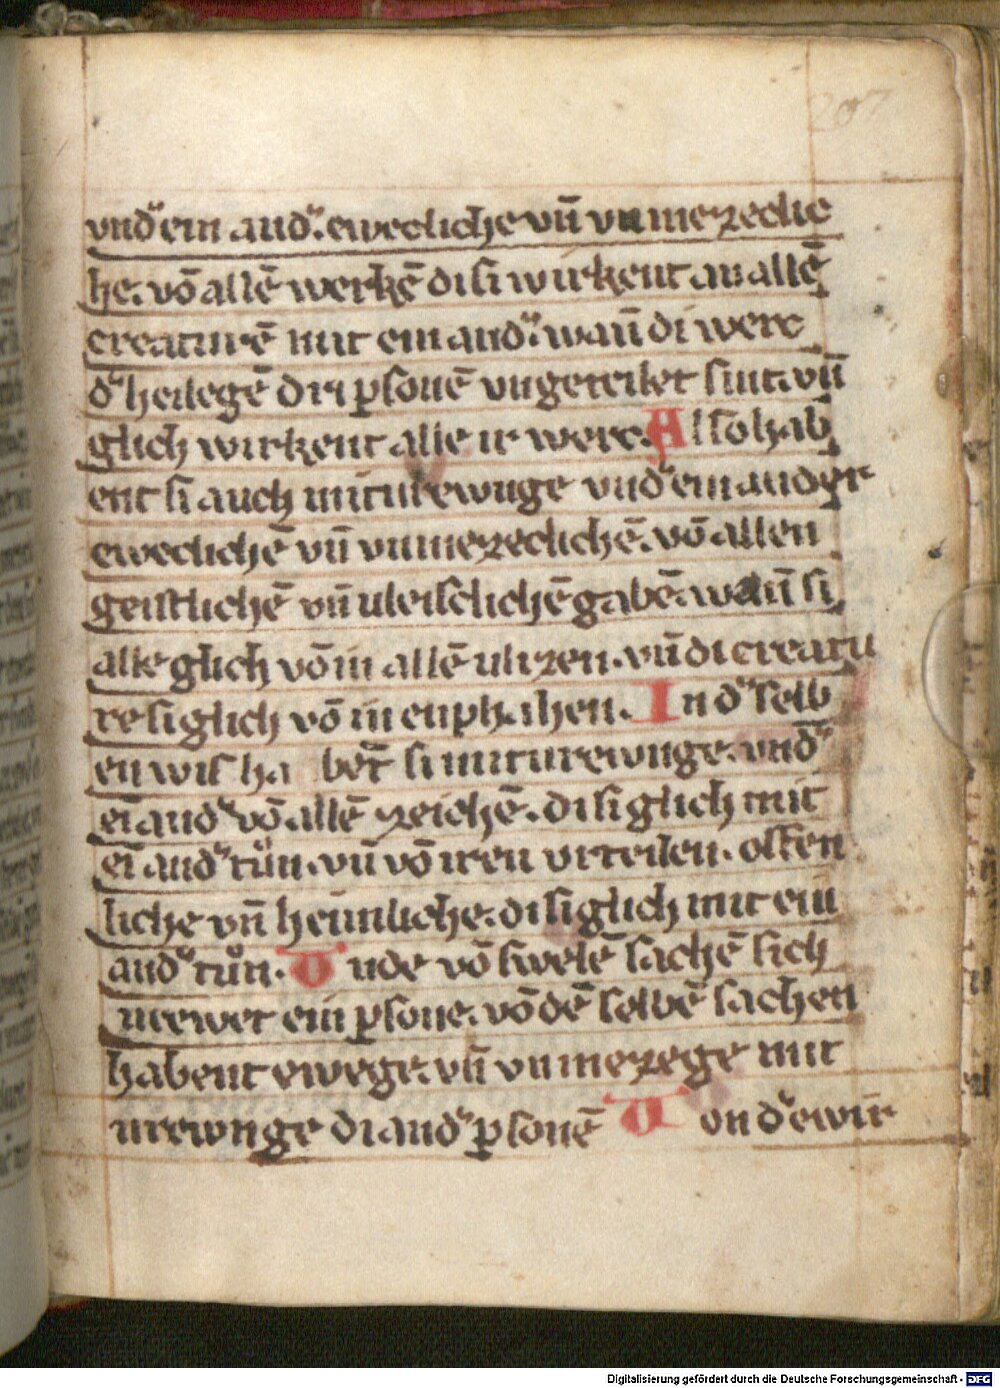 207
vnd͛ ein and͛. ewecliche vn̄ vnmezeclic
he. vō allē werkē di si wirkent an allē
creaturē mit ein and͛. wan̄ di werc
d͛ heilegē dri ꝑsonē vngeteilet sint. vn̄
glich wirkent alle ir werc. Also hab
ent si auch miturewnge vnd͛ ein ander
eweclichē vn̄ vnmezeclichē. vō allen
geistlichē vn̄ vleislichē gabē. wan̄ si
alle glich vō in allē vlizen. vn̄ di creatu
re si glich vō in enphahen. In d͛ selb
en wis ha bēt si miturewnge. vnd͛
eī and͛ vō allē zeichē. di si glich mit
eī and͛ tůn. vn̄ vō iren vrteilen. offen
liche vn̄ heimliche. di si glich mit ein
and͛ tůn. Vnde vō swelē sachē sich
urewet ein ꝑsone. vō dē selbē sachen
habent ewege. vn̄ vnmezege mit
urewnge di and͛ ꝑsonē Von d͛ ewir
Digitalisierung gefördert durch die Deutsche Forschungsgemeinschaft - DFG